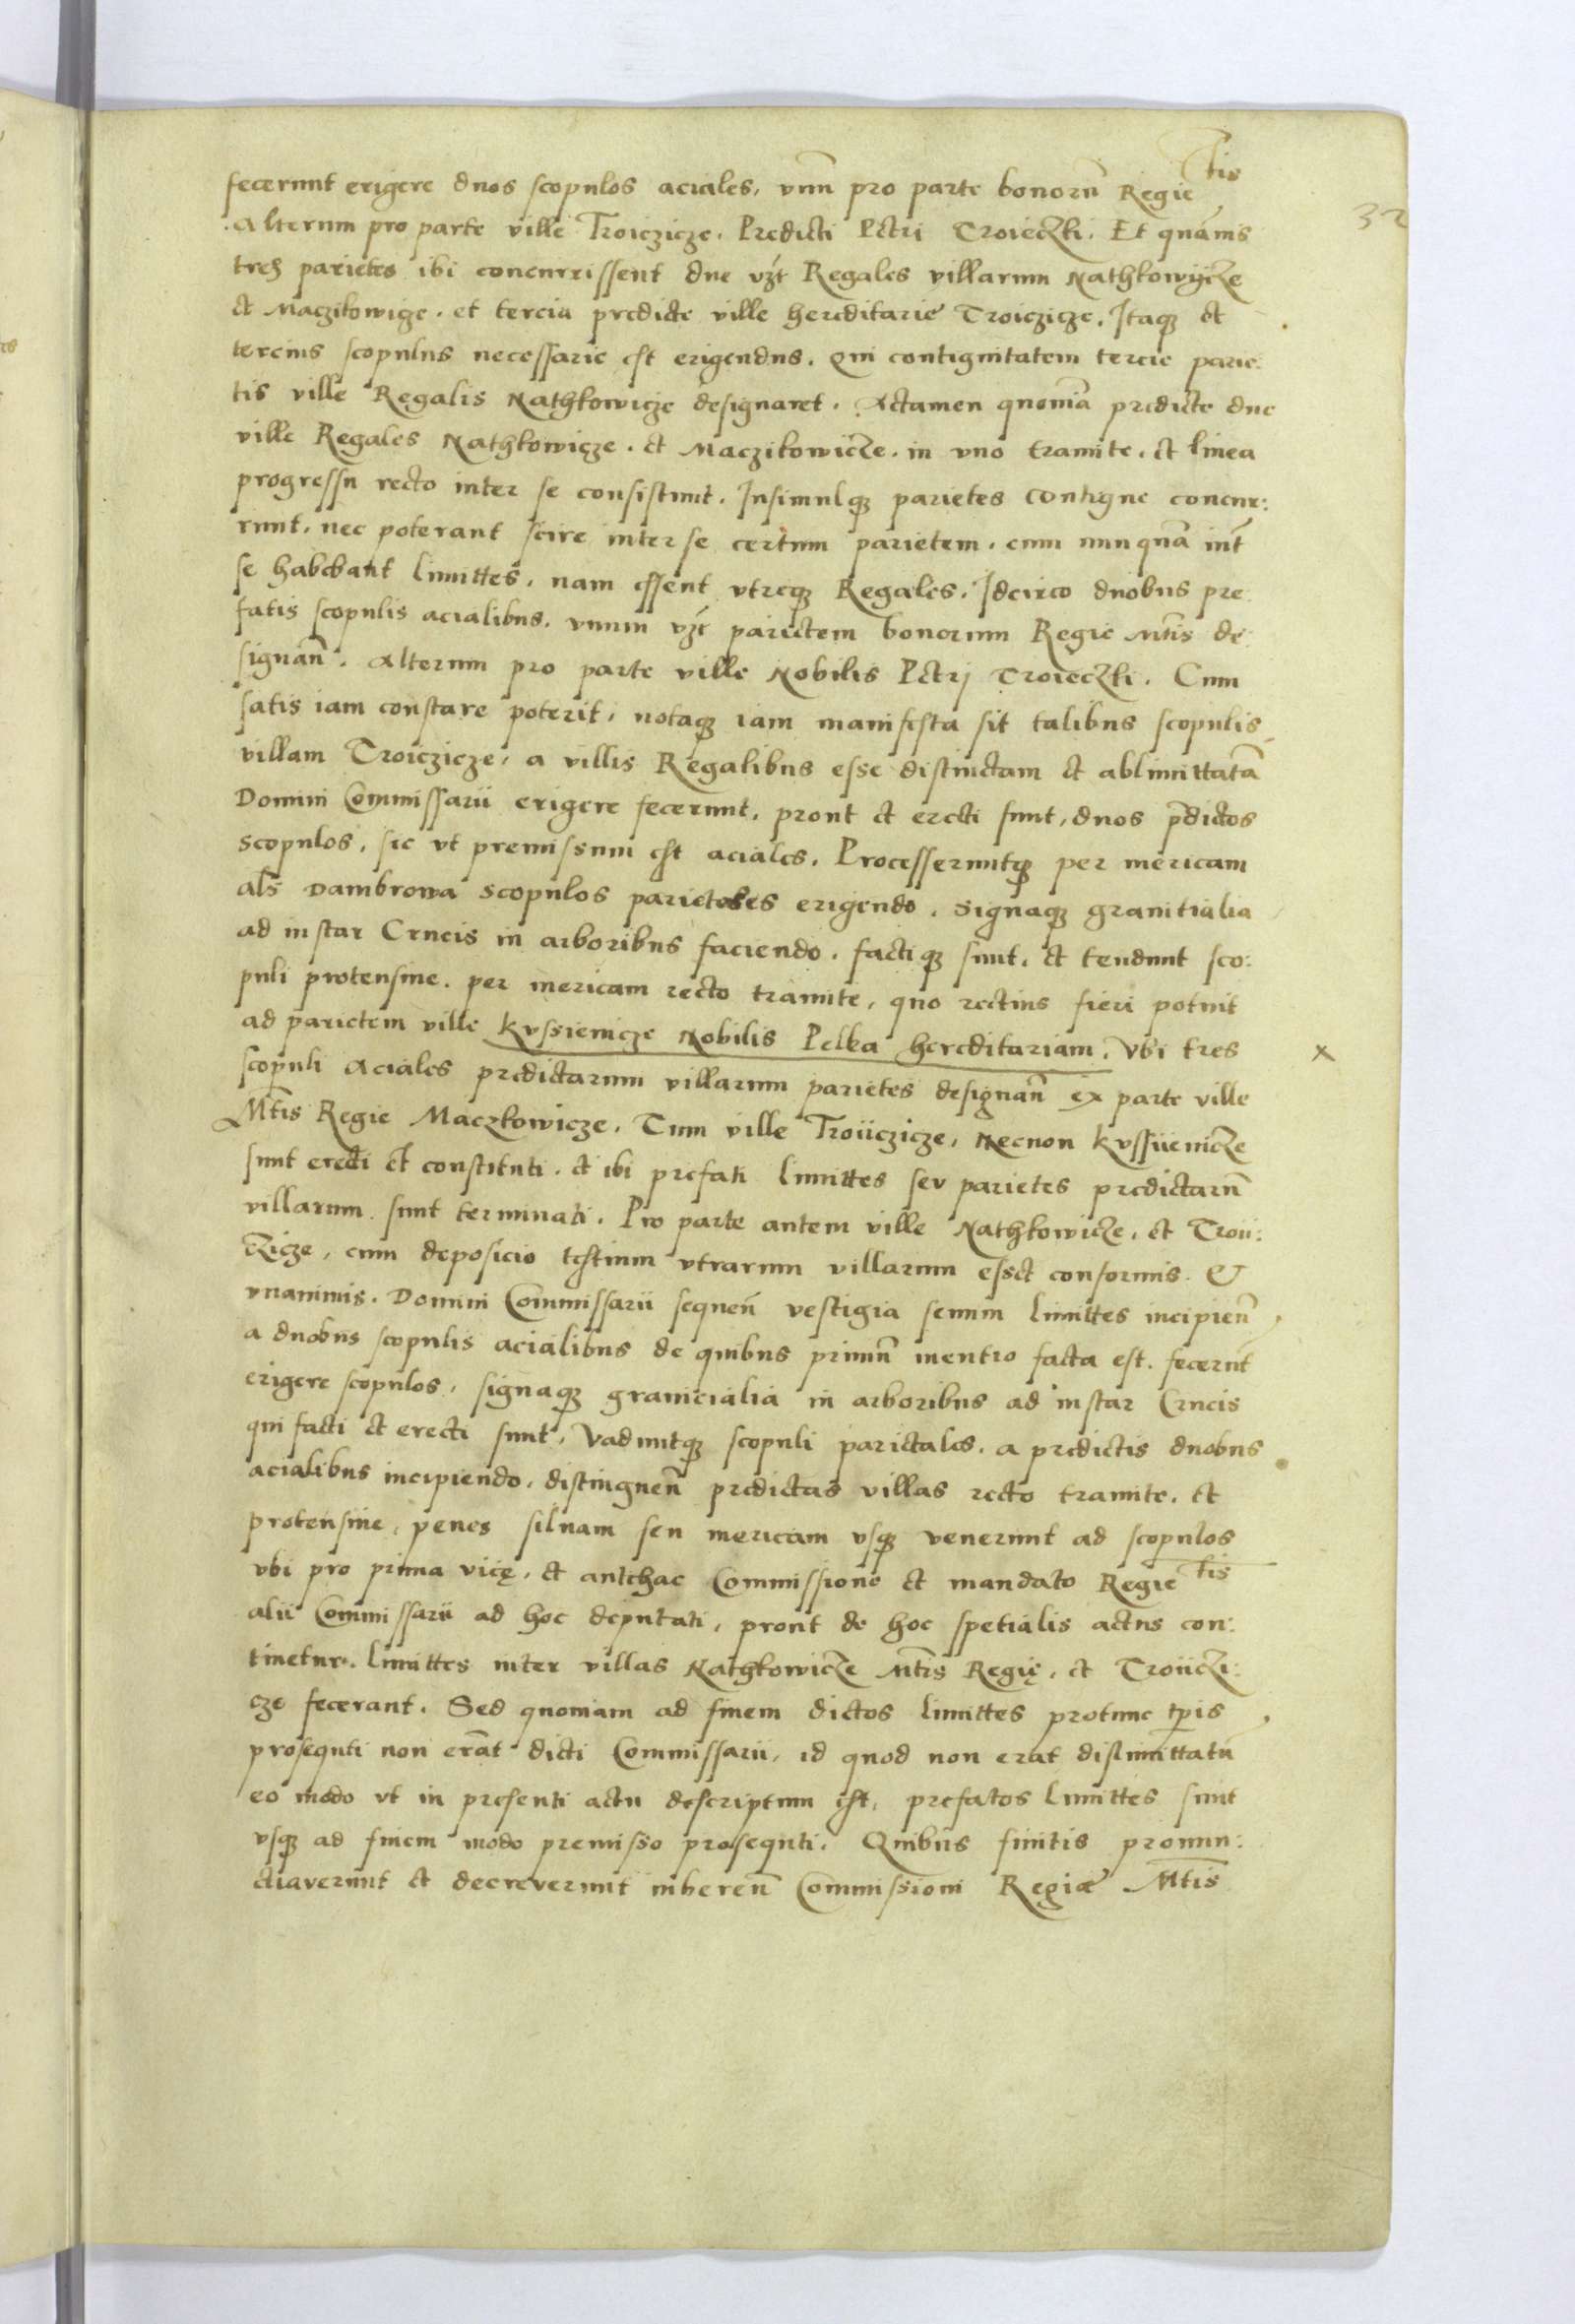 fecerunt erigere duos scopulos aciales, vnū pro parte bonorū Regie Mtis
32
Alterum pro parte ville Troiczicze. Predicti Petri Troieczki. Et quāuis
tres parietes ibi concurrissent due vzt Regales villarum Nathkowycze
et Maczkowicze. et tercia predicte ville hereditarie Troiczicze. Itaq et
tercius scopulus necessarie est erigendus. qui contiguitatem tercie parie:
tis ville Regalis Nathkowicze designaret. Actamen quoniā predicte due
ville Regales Nathkowicze. et Maczikowicze. in vno tramite, et linea
progressu recto inter se consistunt. Insimulq parietes contigue concur:
runt. nec poterant scire inter se certum parietem, cum nunquā int
se habebant limittes, nam essent vtreq Regales. Idcirco duobus pre
fatis scopulis acialibus. vnum vzt parietem bonorum Regie Mtis de:
signan̄. Alterum pro parte ville Nobilis Petrj Troieczki. Cum
satis iam constare poterit, notaq iam manifesta sit talibus scopulis
villam Troiczicze, a villis Regalibus esse distinctam et ablimittatā
Domini Commissarii erigere fecerunt, prout et erecti sunt, duos pdictos
scopulos, sic vt premissum est aciales. Processeruntq per mericam
als Dambrowa scopulos parietales erigendo. signaq granitialia
ad instar Crucis in arboribus faciendo. factiq sunt, et tendunt sco:
puli protensiue. per mericam recto tramite, quo rectius fieri potuit
ad parietem ville Kvssienicze Nobilis Pelka hereditariam. Vbi tres
x
scopuli Aciales predictarum villarum parietes designan̄ ex parte ville
Mtis Regie Maczkowicze. Tum ville Troiiczicze, Necnon Kvssiienicze
sunt erecti et constituti. et ibi prefati limittes sev parietes predictarū
villarum sunt terminati. Pro parte autem ville Nathkowicze, et Troii:
czicze, cum deposicio testium vtrarum villarum esset conformis &
vnanimis. Domini Commissarii sequen̄ vestigia senum limittes incipien̄
a duobus scopulis acialibus de quibus primū mentio facta est. fecerūt
erigere scopulos, signaq granicialia in arboribus ad instar Crucis
qui facti et erecti sunt, Vaduntq scopuli parietales. a predictis duobus
acialibus incipiendo, distinguen̄ predictas villas recto tramite. et
protensiue, penes siluam seu mericam vsq venerunt ad scopulos
vbi pro prima vicę, et antehac Commissione et mandato Regie Mtis
alii Commissarii ad hoc deputati, prout de hoc spetialis actus con:
tinetur. limittes inter villas Nathkowicze Mtis Regię, et Troiiczi:
cze fecerant. Sed quoniam ad finem dictos limittes protunc tpis
prosequti non erāt dicti Commissarii, id quod non erat dislimittatū
eo modo vt in presenti actu descriptum est, prefatos limittes sunt
vsq ad finem modo premisso prosequti. Quibus finitis pronun:
ctiaverunt et decreverunt inheren̄ Commissioni Regiæ Mtis